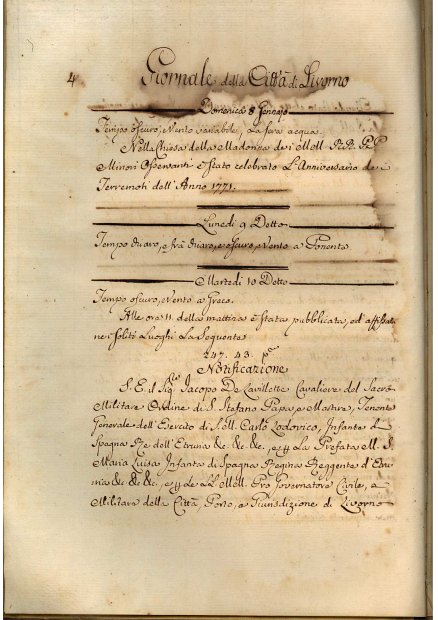 4 Giornale della Città di Livorno
Domenica 8 Gennajo
Tempo oscuro, Vento variabile, La sera acqua.
Nella Chiesa della Madonna dei MM. RR. PP.
Minori Osservanti è stato celebrato L'Anniversario dei
Terremoti dell'Anno 1771.
Lunedì 9 Detto
Tempo chiaro, e frà chiaro, e oscuro, e Vento a Ponente
Martedì 10 Detto
Tempo oscuro, e Vento a Greco.
Alle ore 11. della mattina è stata pubblicata, ed affissa
nei soliti Luoghi La Seguente
247. 43. p.mo
Notificazione
S. E. il Sig. Jacopo De Lavillette Cavaliere del Sacro
Militare Ordine di S. Stefano Papa, e Martire, Tenente
Generale dell'Esercito di S. M. Carlo Lodovico, Infante di
Spagna Re dell'Etruria &c. &c. &c., e La Prefata M. S.
Maria Luisa Infanta di Spagna Regina Reggente d'Etru
ria &c. &c. &c., e Pro Governatore Civile, e
Militare della Città, Porto, e Giurisdizione di Livorno